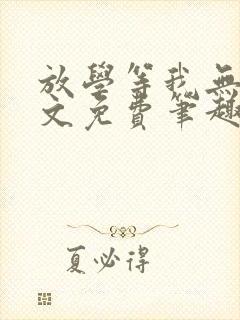 放學等我無
文免費筆趣
夏必得